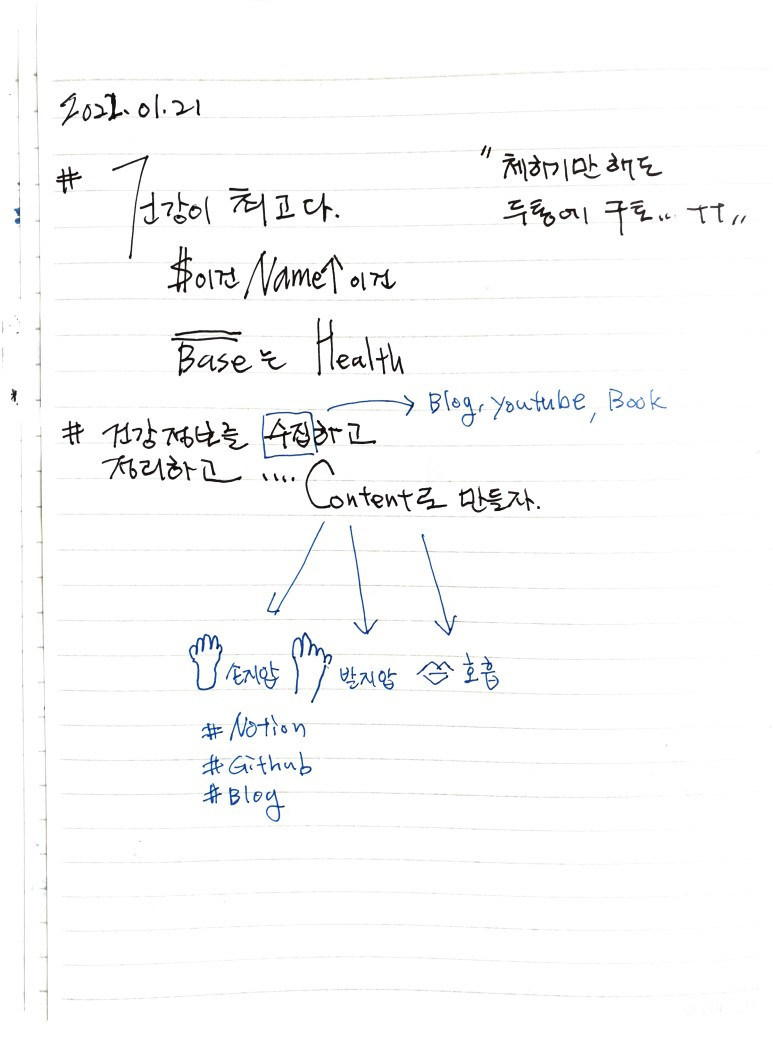 2022.01.21
# 건강이 최고다.
"체하기만 해도
두통에 구토.. ㅜㅜ"
$이건 Name↑이건
Base는 Health
# 건강정보를 수집하고 → Blog, youtube, Book
정리하고 ....
Content로 만들자.
손지압 발지압 호흡
#Notion
#Github
#Blog